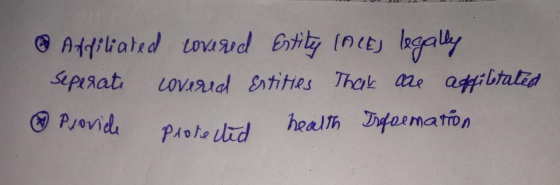 ⊛ Affiliated covered Entity (ACE) legally
seperate covered entities That are affilitated
⊛ Provide protected health Information